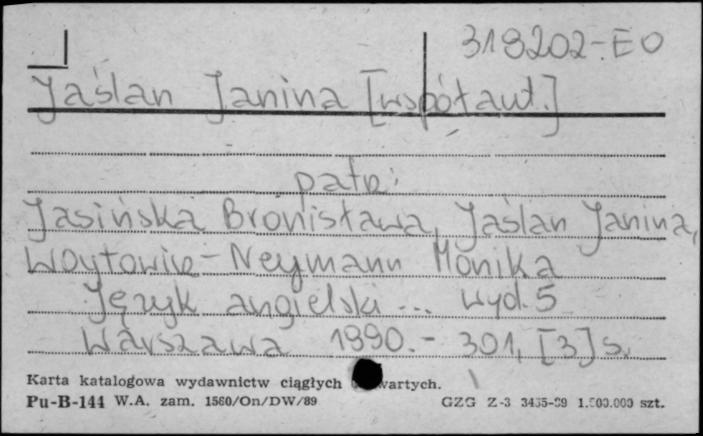 318202-EO
Jaślan Janina [współaut.]
patrz:
Jasińska Bronisława, Jaślan Janina,
Woytowicz-Neymann Monika
Język angielski ... wyd. 5
Warszawa 1990.- 301, [3] s.
Karta katalogowa wydawnictw ciągłych wartych.
Pu-B-144 W.A. zam. 1560/On/DW/89 GZG Z-3 3435-89 1.500.000 szt.